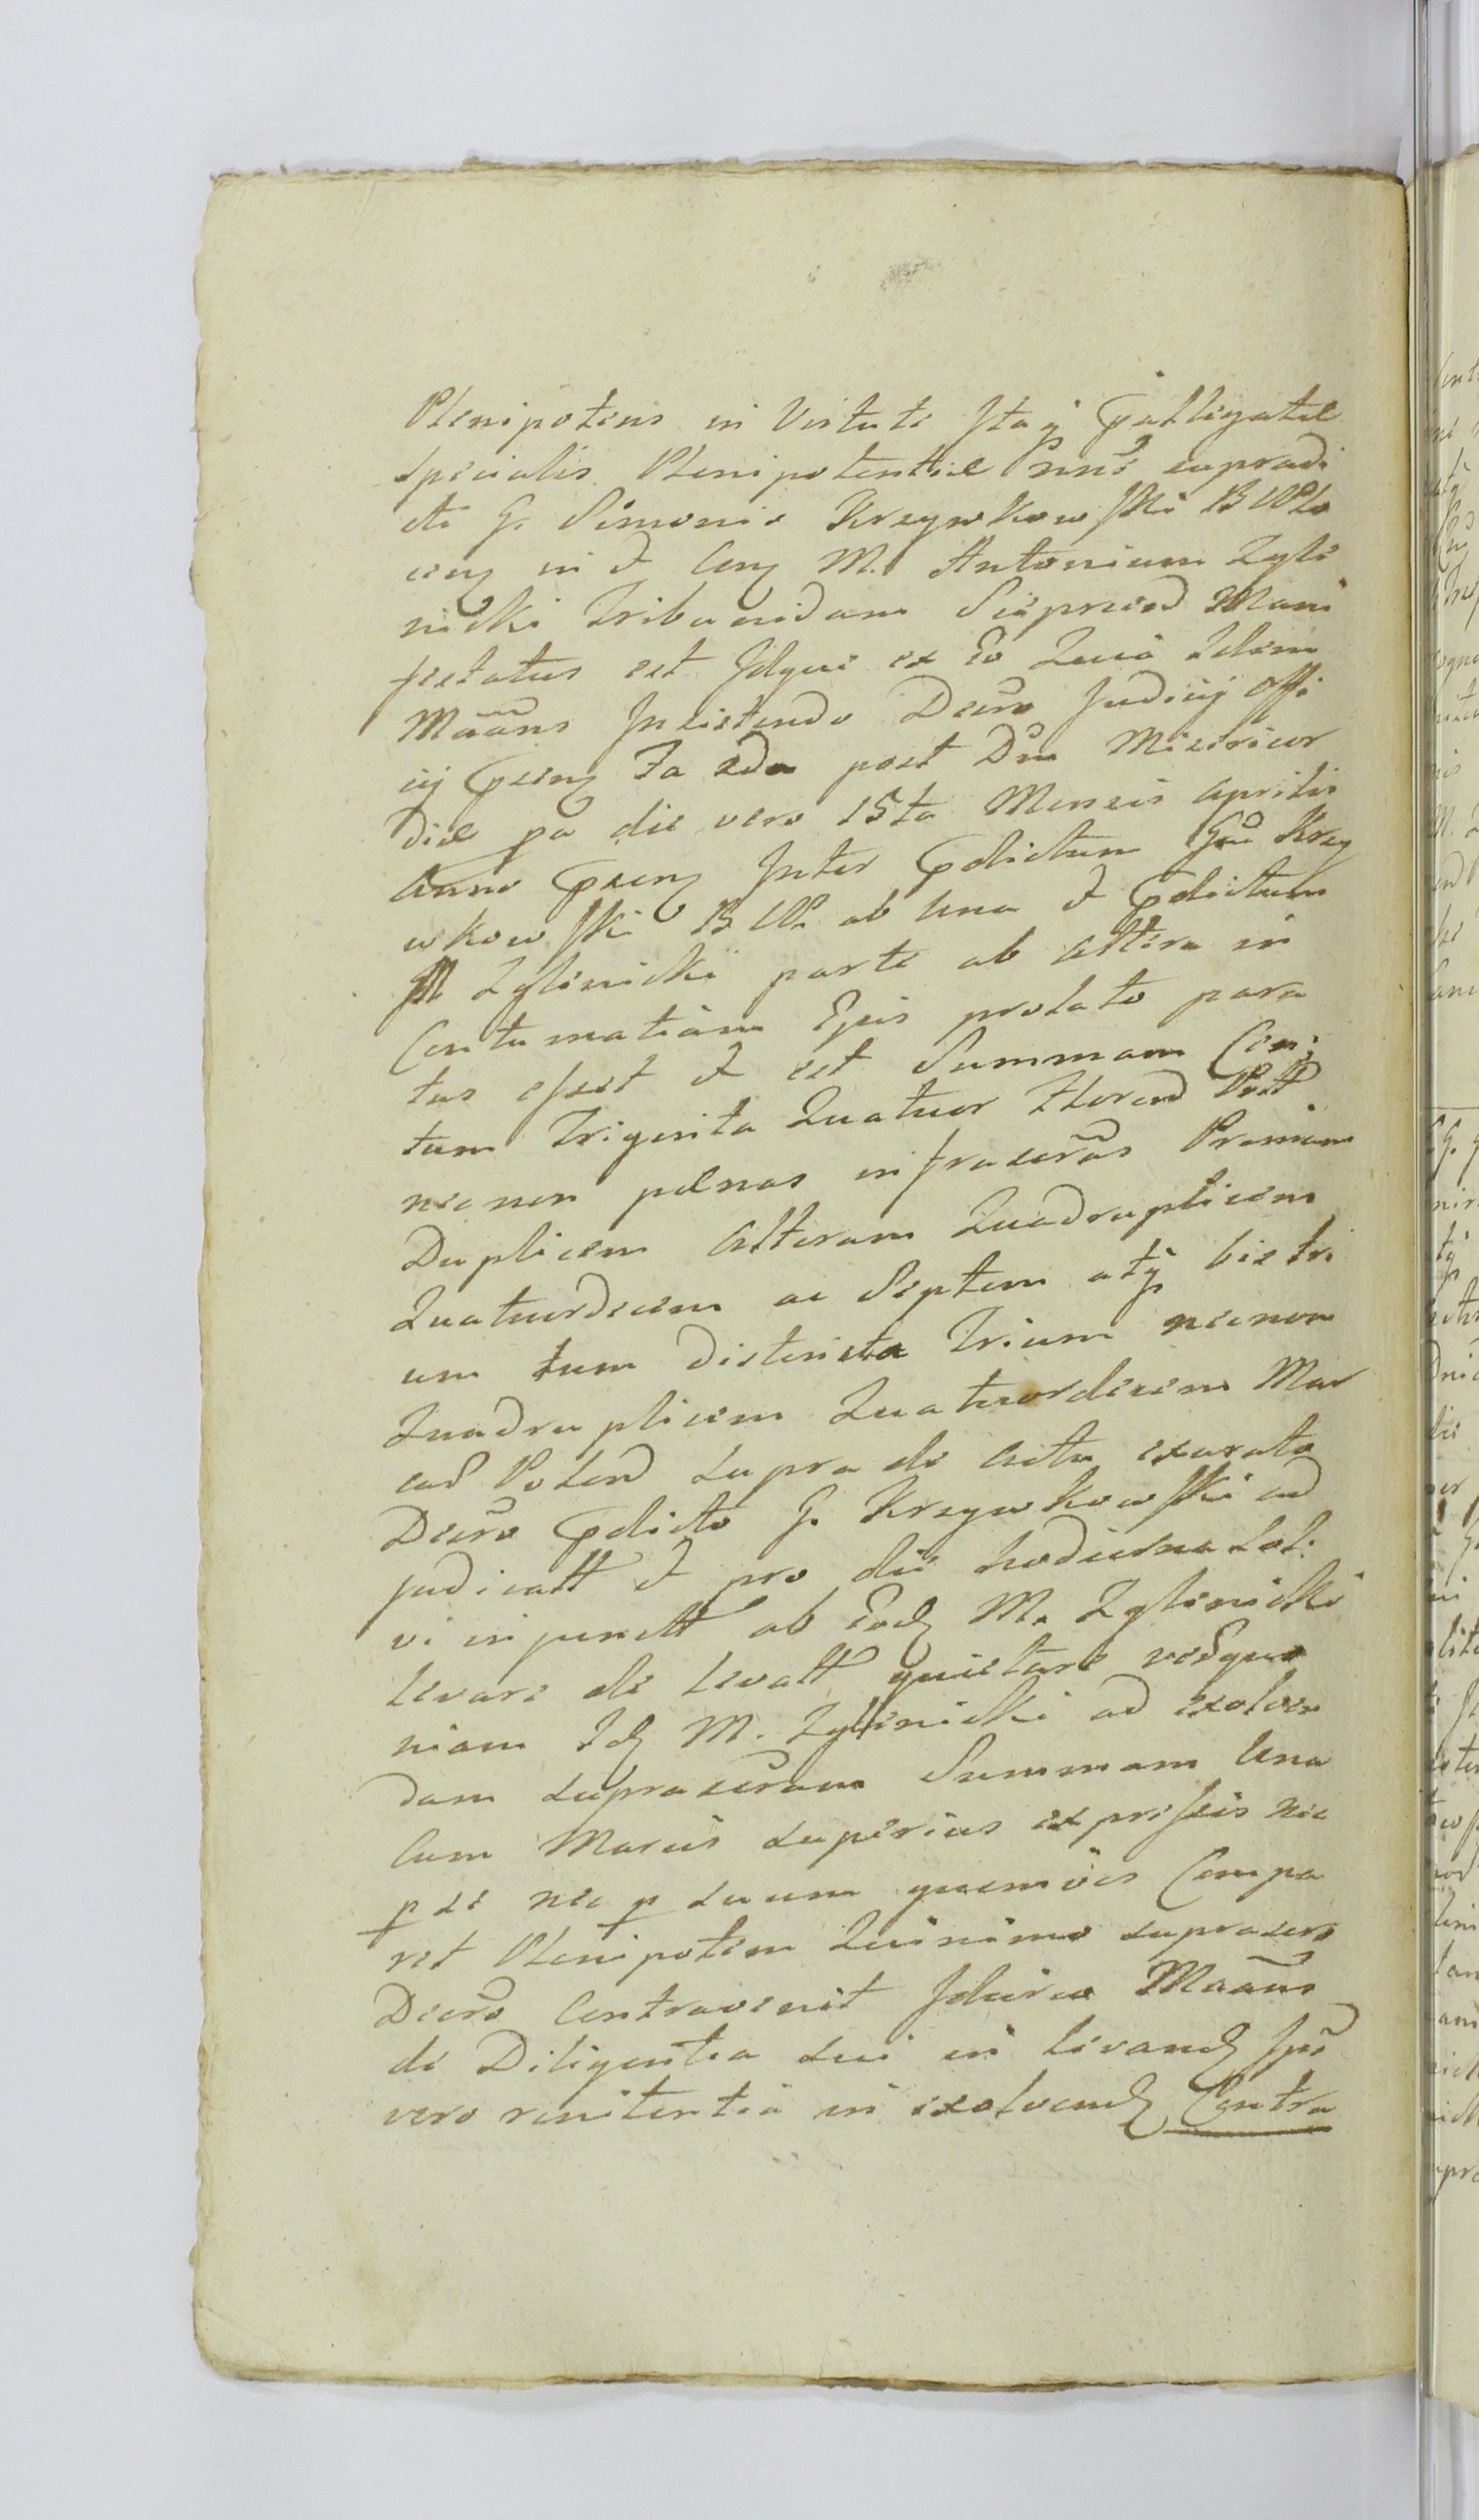 Plenipotens in Virtute Itaq pallegatae
Specialis Plenipotentiae nne supradi
cti G. Simonis Krzywkowski B W Plo
cen in & Con M. Antonium Zgli
nicki Tribunidam Sieprscen Mani
festatus est Idque ex Eo Quia Idem
Maans Insistendo Decro Judicij Offi
cij psen Fa 2da post Dnm Misericor
diae pa die vero 15ta Mensis Aprilis
Anno psen Inter pdictum Gsu Krzy
wkowski B W P. ab Una & pdictum
M Zglinicki parte ab Altera in
Contumatiam Ejus prolato para
tus esset & est Summam Cen
tum Triginta Quatuor Floren Poll
necnon paenas infrascras Primam
Duplicem Alteram Quadruplicem
Quatuordecem ac Septem atq bis tri
um tum districta Trium necnon
Quadruplicem Quatuordecem Mar
cas Polon supra de Actu exarato
Decro pdicto G. Krzywkowski ad
judicatt & pro die hodierna Sol
vi injunctt ab Eod M. Zglinicki
levare de levatt quietare
niam Id M. Zglinicki ad exolven
dam suprascram Summam Una
Cum Marcis superius expressis nec
p se nec p suum quemvis Compa
ret Plenipotem Quinimo suprascro
Decro Contravenit Idcirco Maans
de Diligentia sui in levand Ipi
vero renitentia in exolvend Contra